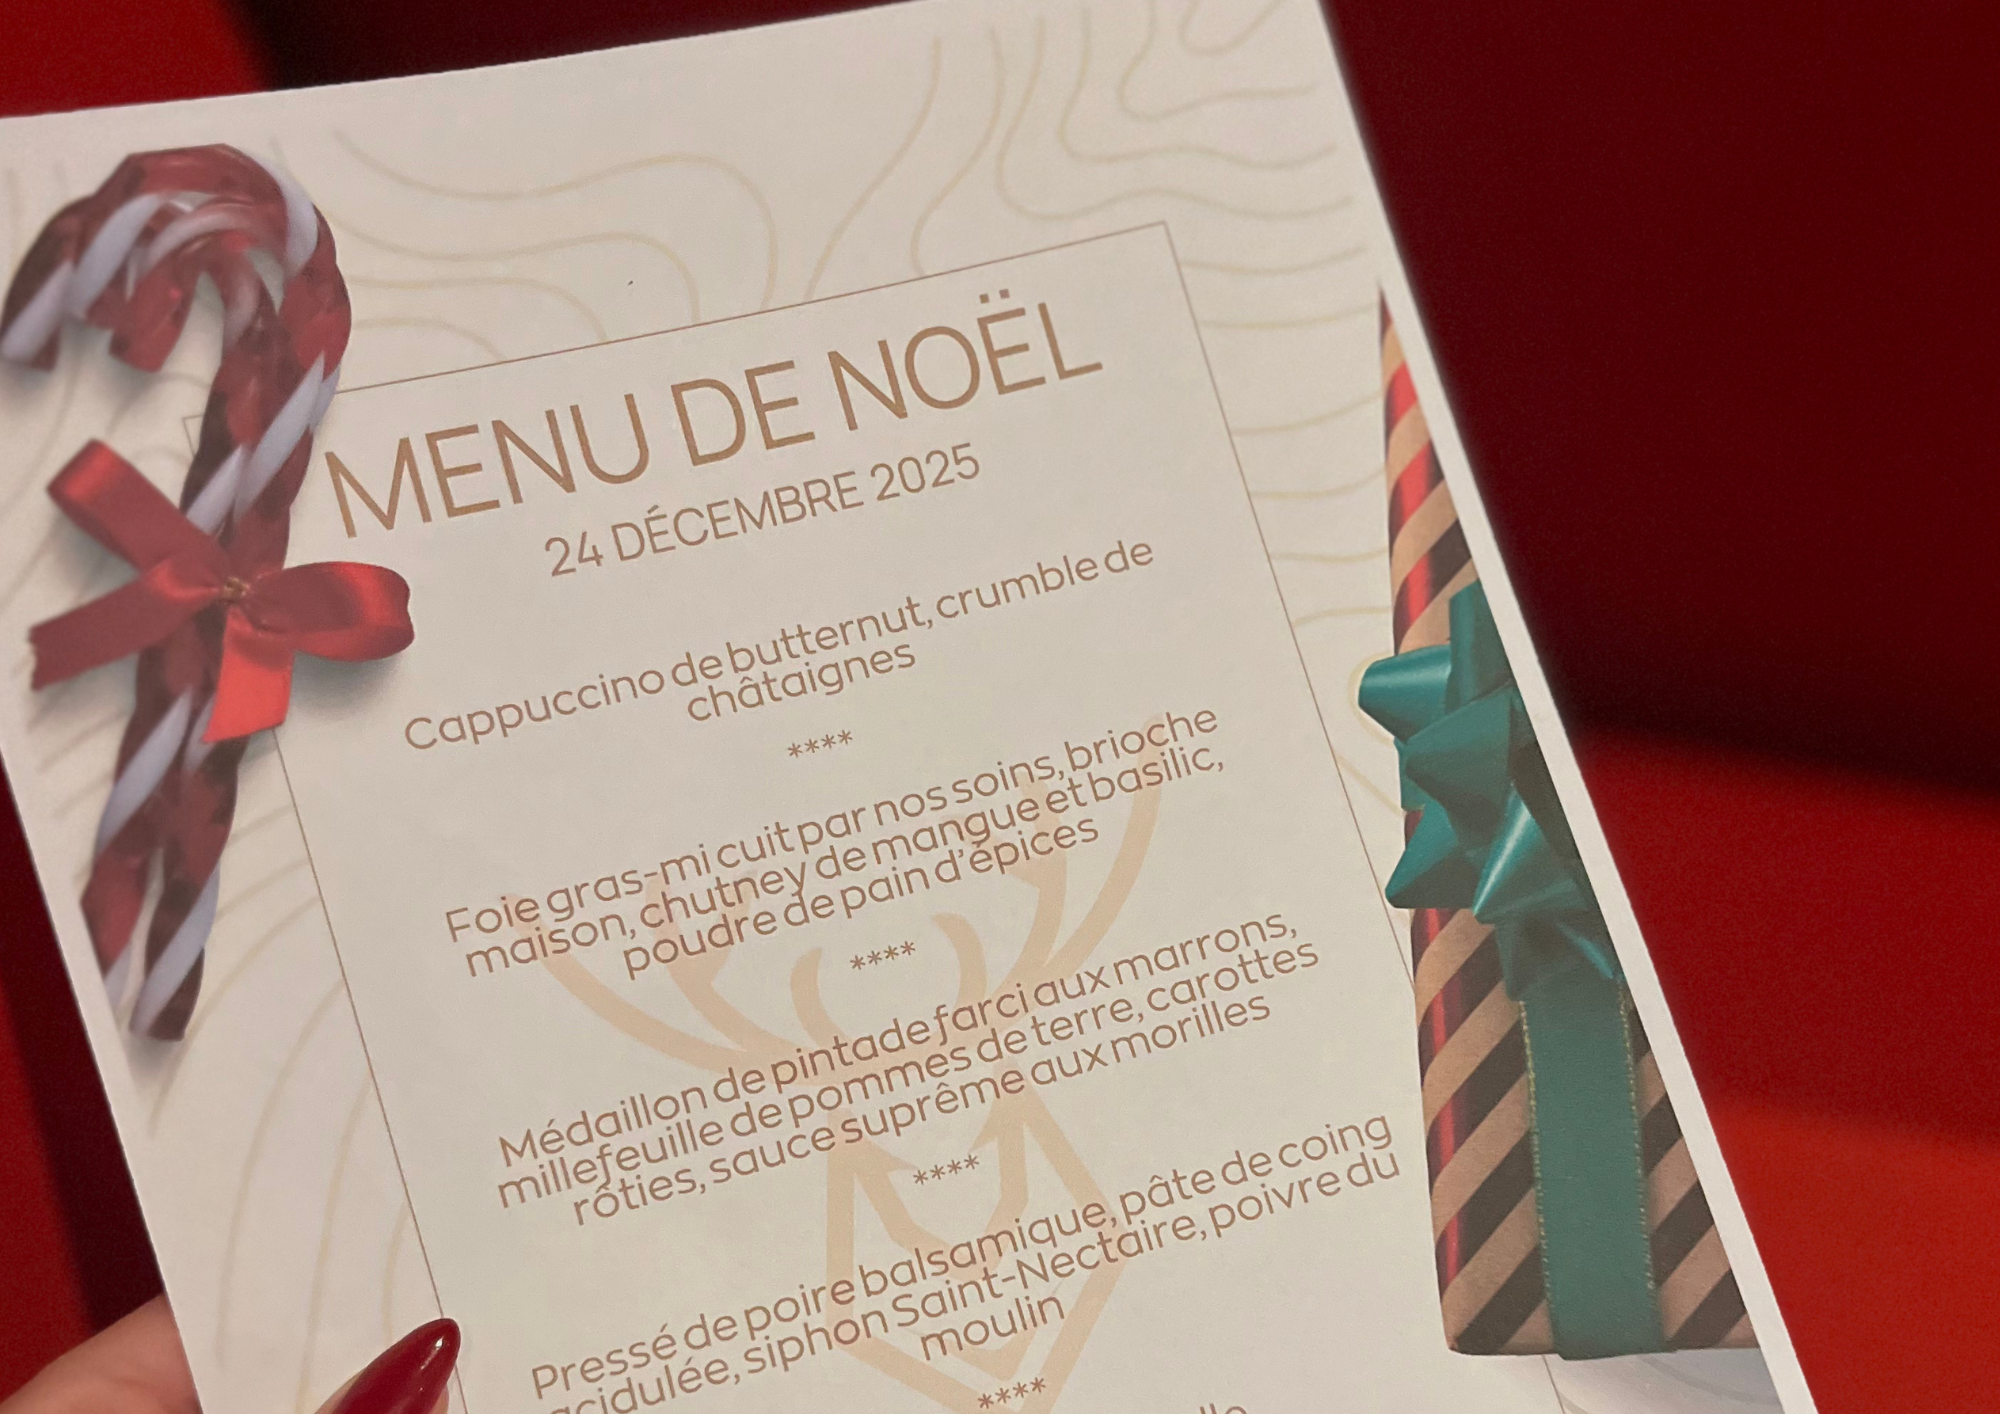 MENU DE NOËL
24 DÉCEMBRE 2025
Cappuccino de butternut, crumble de
châtaignes
****
Foie gras-mi cuit par nos soins, brioche
maison, chutney de mangue et basilic,
poudre de pain d'épices
****
Médaillon de pintade farci aux marrons,
millefeuille de pommes de terre, carottes
rôties, sauce suprême aux morilles
****
Pressé de poire balsamique, pâte de coing
acidulée, siphon Saint-Nectaire, poivre du
moulin
****